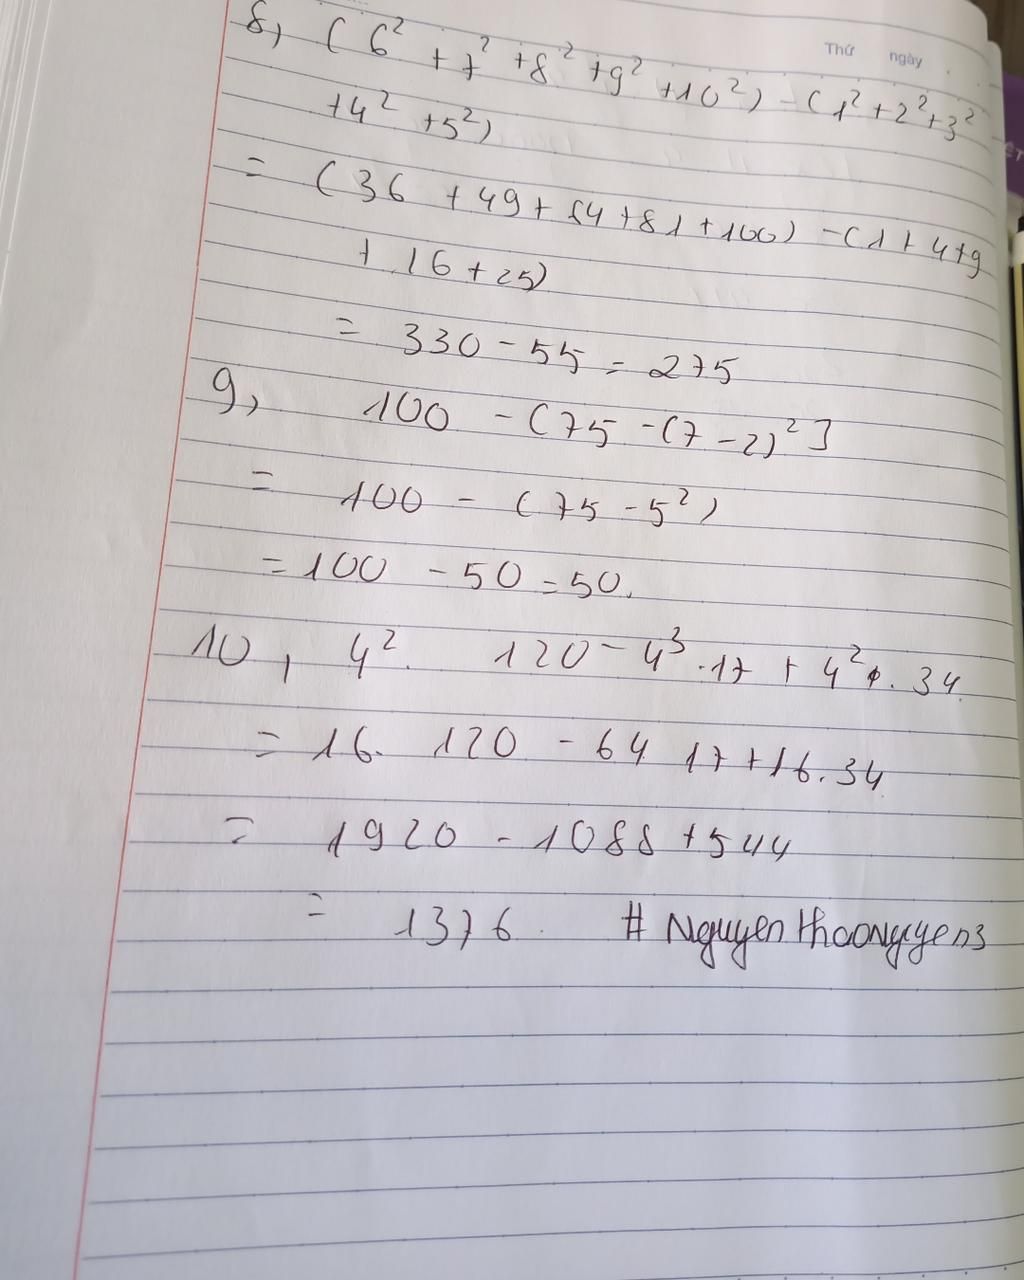 Thứ ngày
8, (6² + 7² + 8² + 9² + 10²) - (1² + 2² + 3²
+ 4² + 5²)
= (36 + 49 + 64 + 81 + 100) - (1 + 4 + 9
+ 16 + 25)
= 330 - 55 = 275
9, 100 - (75 - (7 - 2)²]
= 100 - (75 - 5²)
= 100 - 50 = 50.
10, 4². 120 - 4³.17 + 4². 34
= 16. 120 - 64 17 + 16.34
= 1920 - 1088 + 544
= 1376. # Nguyenthaonguyen3